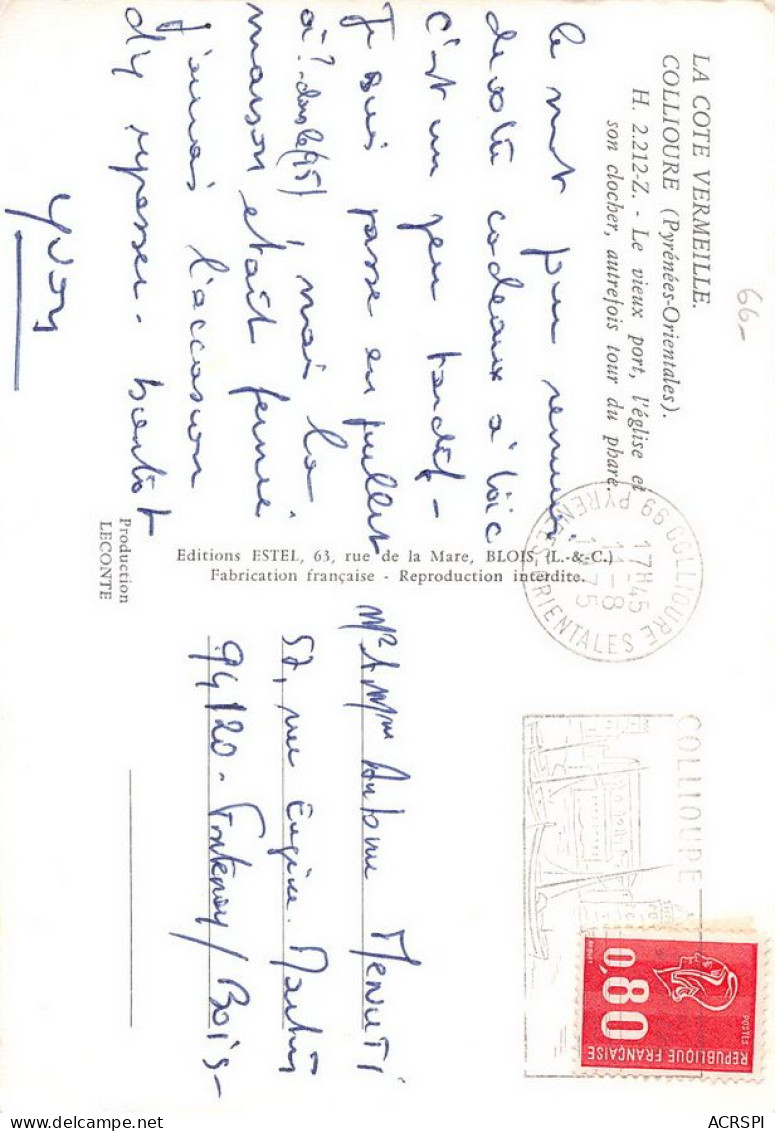 LA COTE VERMEILLE.
COLLIOURE (Pyrénées-Orientales).
H. 2.212-Z. - Le vieux port, l'église et
son clocher, autrefois tour du phare.
66-
de votre cadeaux a Loïc
c'est un peu tardif -
Je suis passe en juillet
à ? dans le (95) , mai la
maison etait fermé
j'aurais l'accasion
d'y repasser. bientot
Yvon
Production
LECONTE
Editions ESTEL, 63, rue de la Mare, BLOIS (L.-&-C.)
Fabrication française - Reproduction interdite.
66 COLLIOURE
17H45
11-8
1975
PYRENEES-ORIENTALES
COLLIOURE
0,80
POSTES
REPUBLIQUE FRANÇAISE
Mr & Mme Antoine MENUTI
57, rue Eugène Martin
94120 - Fontenay/Bois-
ACRSPI